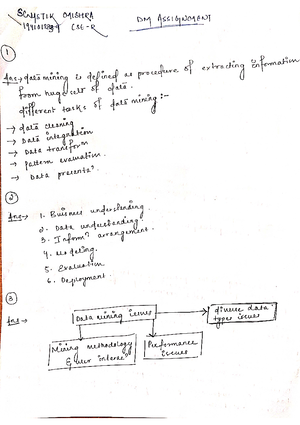 MISHRA
DM ASSIGNMENT
CSE-R
1
Ans → data mining is defined as procedure of extracting information
from huge set of data.
different tasks of data mining :-
→ data cleaning
→ Data integration
→ Data transform
→ pattern evaluation.
→ Data presentⁿ.
2
Ans → 1. Business understanding
2. Data understanding
3. Informⁿ arrangement.
4. Modeling.
5. Evaluation
6. Deployment
3
Ans →
Data mining issues
diverse data
types issues
Mining methodology
& user interacⁿ
Performance
issues